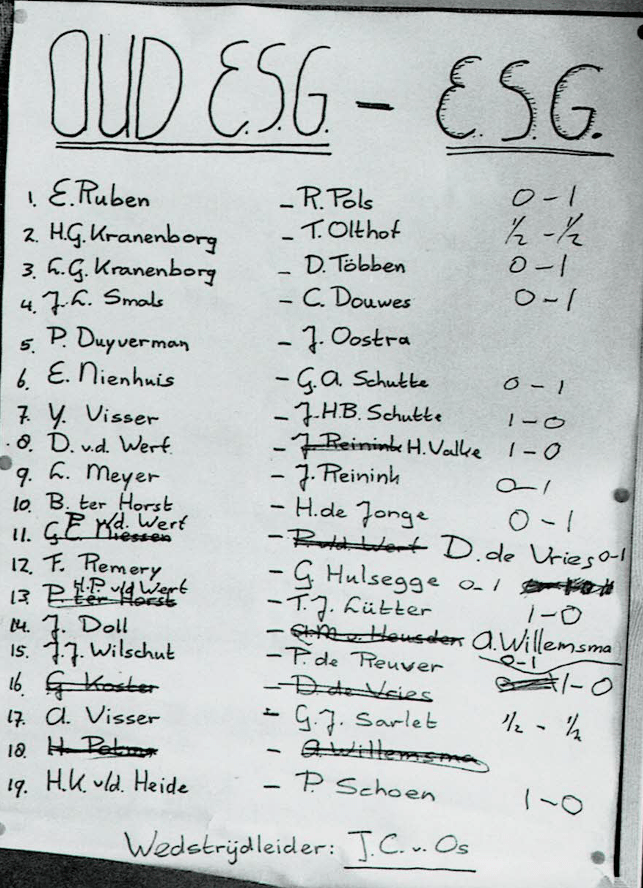 OUD E.S.G. - E.S.G.
1. E. Ruben - R. Pols 0-1
2. H.G. Kranenborg - T. Olthof ½-½
3. L.G. Kranenborg - D. Többen 0-1
4. J.L. Smals - C. Douwes 0-1
5. P. Duyverman - J. Oostra
6. E. Nienhuis - G.A. Schutte 0-1
7. Y. Visser - J.H.B. Schutte 1-0
8. D. v.d. Werf - J. Reinink H. Valke 1-0
9. L. Meyer - J. Reinink 0-1
10. B. ter Horst - H. de Jonge 0-1
11. G.E. Niessen P. v/d. Wert - R. v/d. Werf D. de Vries 0-1
12. F. Remery - G Hulsegge 0-1
13. P. ter Horst H.P. v/d Wert - T.J. Lütter 1-0
14. J. Doll - A.M. v. Heusden A. Willemsma 0-1
15. J.J. Wilschut - P. de Reuver 1-0
16. G. Koster - D. de Vries
17. A. Visser - G.J. Sarlet ½-½
18. H. Potma - A. Willemsma
19. H.K. v/d. Heide - P. Schoen 1-0
Wedstrijdleider: J.C. v. Os